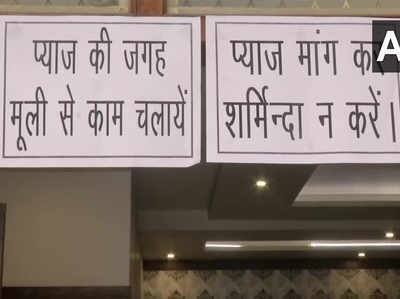 प्याज की जगह
मूली से काम चलायें
प्याज मांग कर
शर्मिन्दा न करें।
A